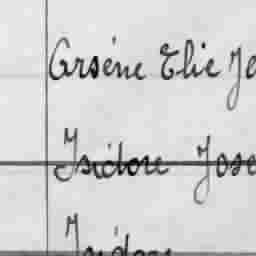 Arsène Elie Je
Isidore Jose
Isidore